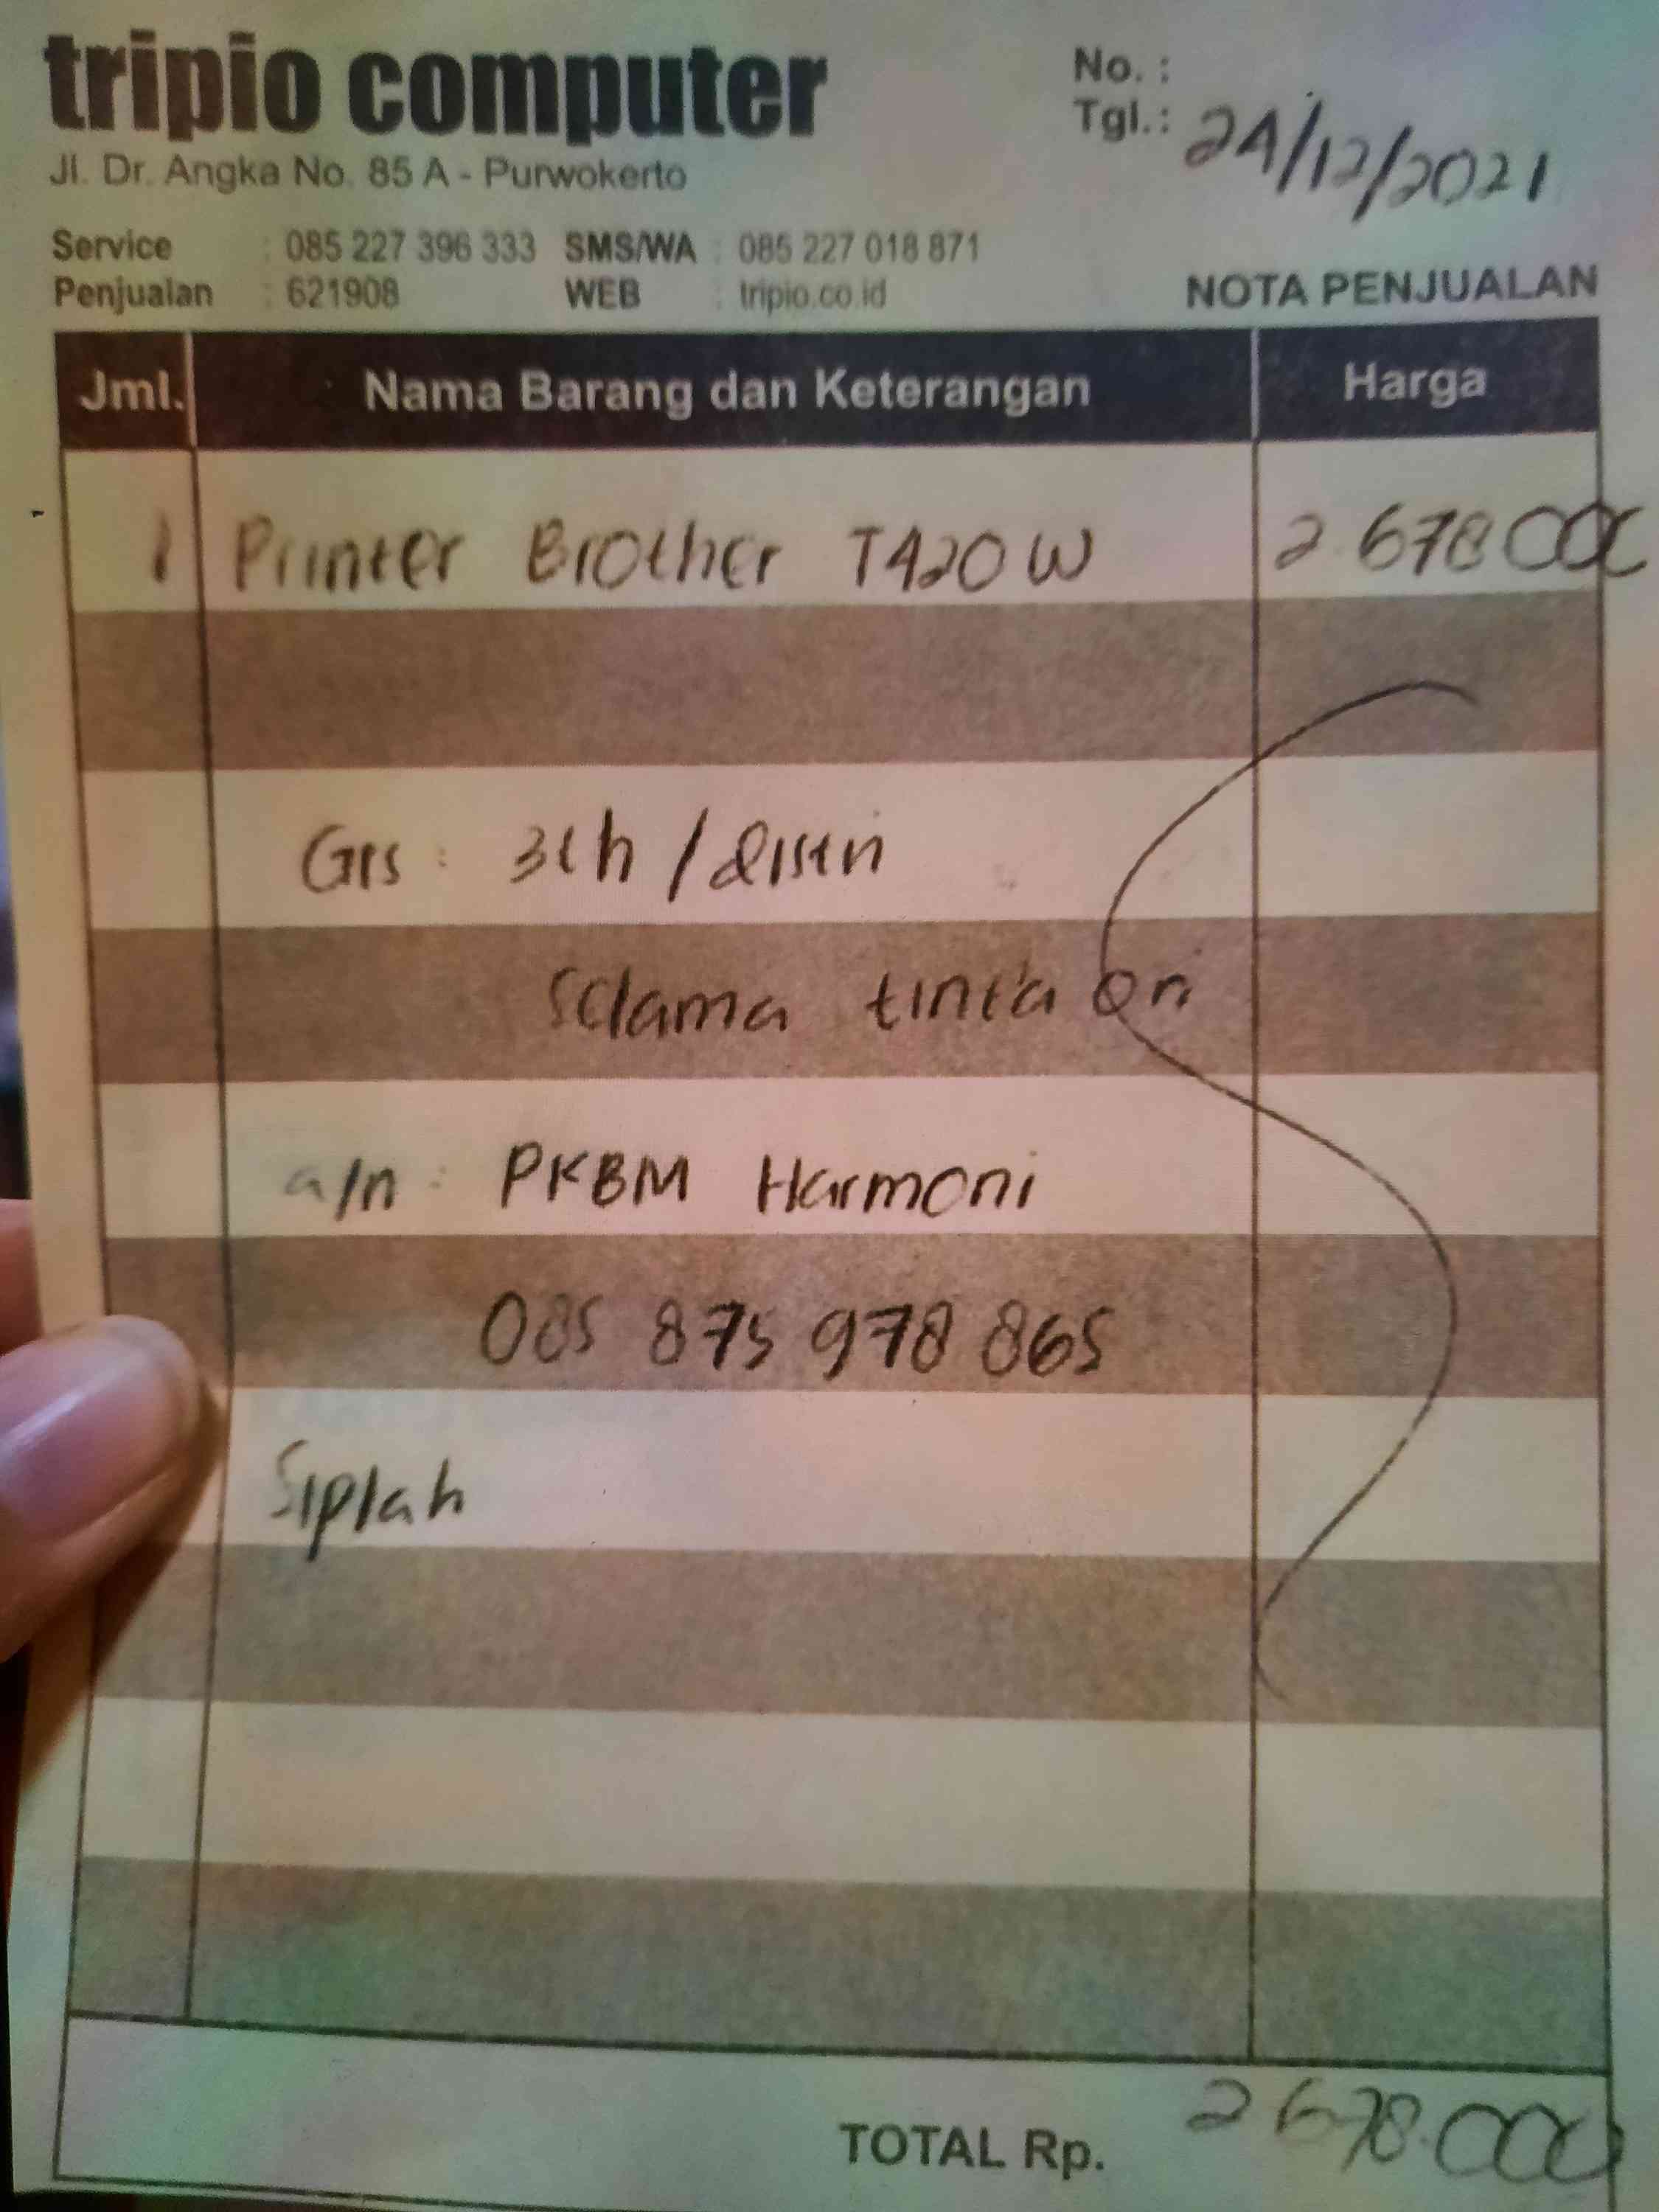 tripio computer
No. :
Tgl.: 24/12/2021
Jl. Dr. Angka No. 85 A - Purwokerto
Service : 085 227 396 333 SMS/WA : 085 227 018 871
Penjualan : 621908 WEB : tripio.co.id
NOTA PENJUALAN
Jml. Nama Barang dan Keterangan Harga
1 Printer Brother T420W 2.678000
Grs : 3th /
selama tinta ori
a/n : PKBM Harmoni
085 875 978 865
Siplah
TOTAL Rp. 2678.000